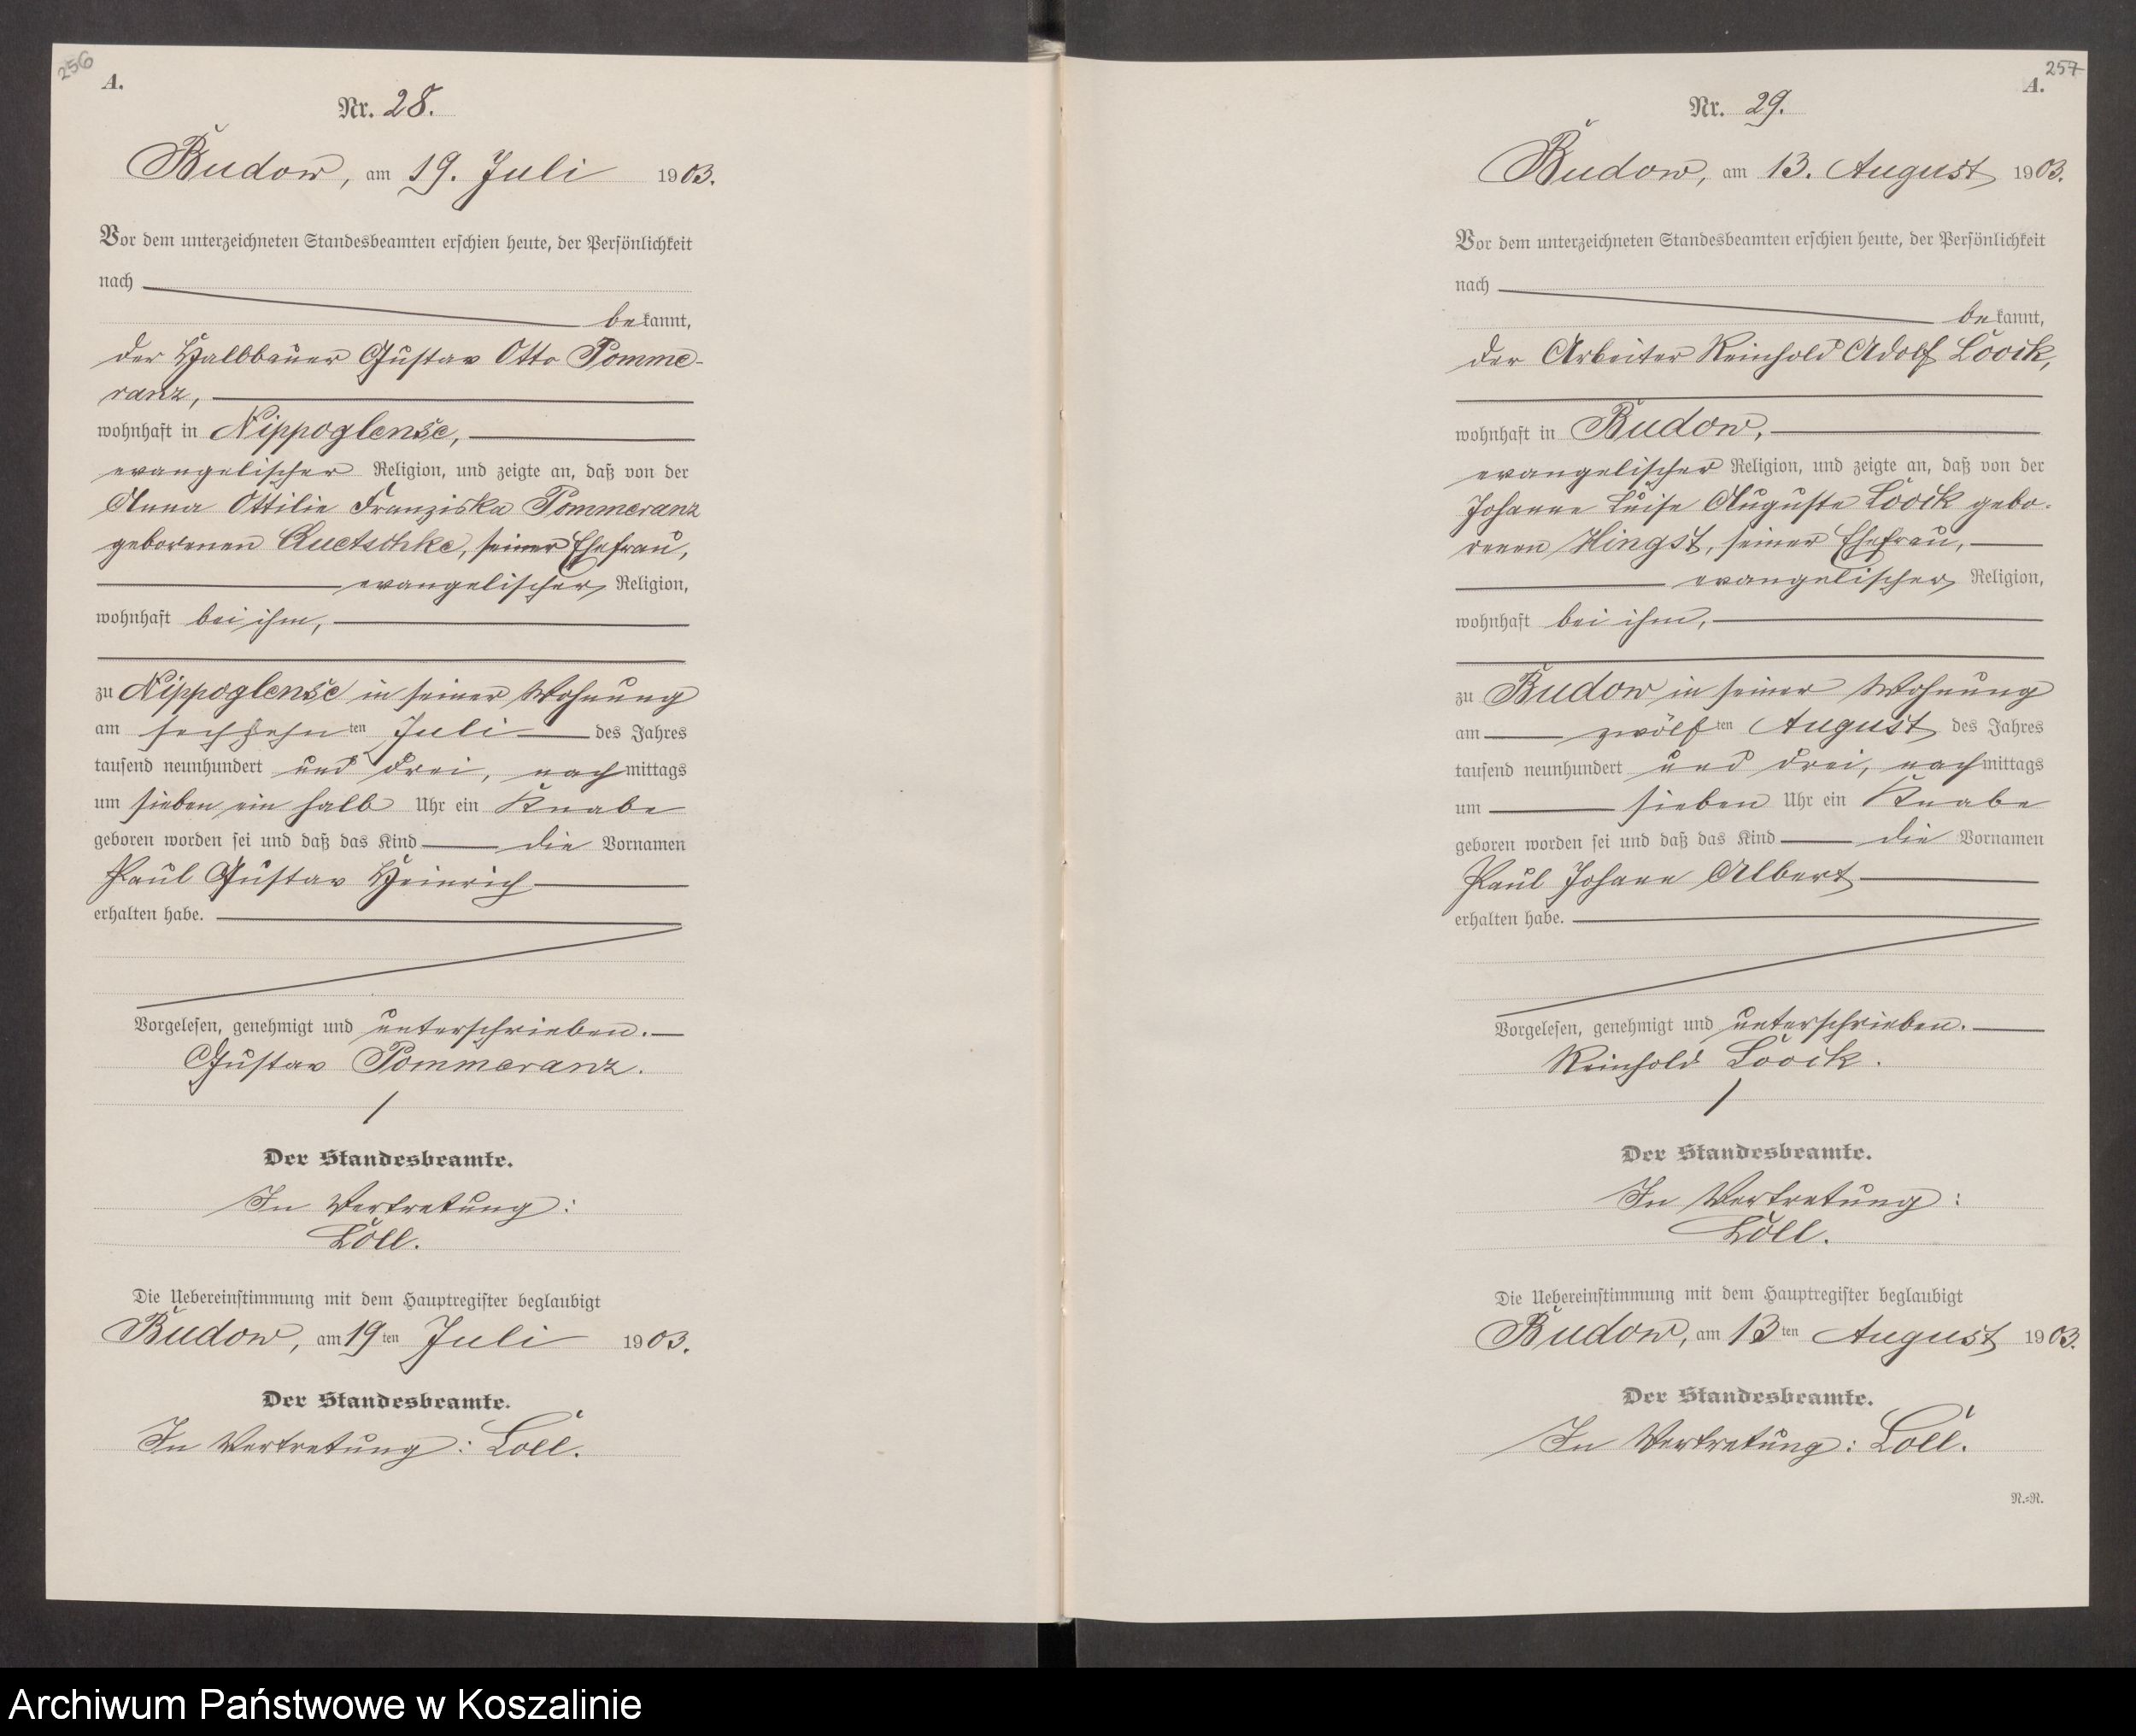 256
A.
Nr. 28.
Budow, am 19. Juli 1903.
Vor dem unterzeichneten Standesbeamten erschien heute, der Persönlichkeit
nach
bekannt,
der Halbbauer Gustav Otto Pomme-
ranz,
wohnhaft in Nippoglense,
evangelischer Religion, und zeigte an, daß von der
Anna Ottilie Franziska Pommeranz
geborenen Quetschke, seiner Ehefrau,
evangelischer Religion,
wohnhaft bei ihm,
zu Nippoglense in seiner Wohnung
am sechzehnten Juli des Jahres
tausend neunhundert und drei, nachmittags
um sieben ein halb Uhr ein Knabe
geboren worden sei und daß das Kind die Vornamen
Paul Gustav Heinrich
erhalten habe.
Vorgelesen, genehmigt und unterschrieben.
Gustav Pommeranz.
Der Standesbeamte.
In Vertretung:
Löll.
Die Uebereinstimmung mit dem Hauptregister beglaubigt
Budow, am 19ten Juli 1903.
Der Standesbeamte.
In Vertretung: Löll.
257
A.
Nr. 29.
Budow, am 13. August 1903.
Vor dem unterzeichneten Standesbeamten erschien heute, der Persönlichkeit
nach
bekannt,
der Arbeiter Reinhold Adolf Loock,
wohnhaft in Budow,
evangelischer Religion, und zeigte an, daß von der
Johanne Luise Auguste Loock gebo-
renen Hingst, seiner Ehefrau,
evangelischer Religion,
wohnhaft bei ihm,
zu Budow in seiner Wohnung
am zwölften August des Jahres
tausend neunhundert und drei, nachmittags
um sieben Uhr ein Knabe
geboren worden sei und daß das Kind die Vornamen
Paul Johann Albert
erhalten habe.
Vorgelesen, genehmigt und unterschrieben.
Reinhold Loock.
Der Standesbeamte.
In Vertretung:
Löll.
Die Uebereinstimmung mit dem Hauptregister beglaubigt
Budow, am 13ten August 1903.
Der Standesbeamte.
In Vertretung: Löll.
R.=R.
Archiwum Państwowe w Koszalinie